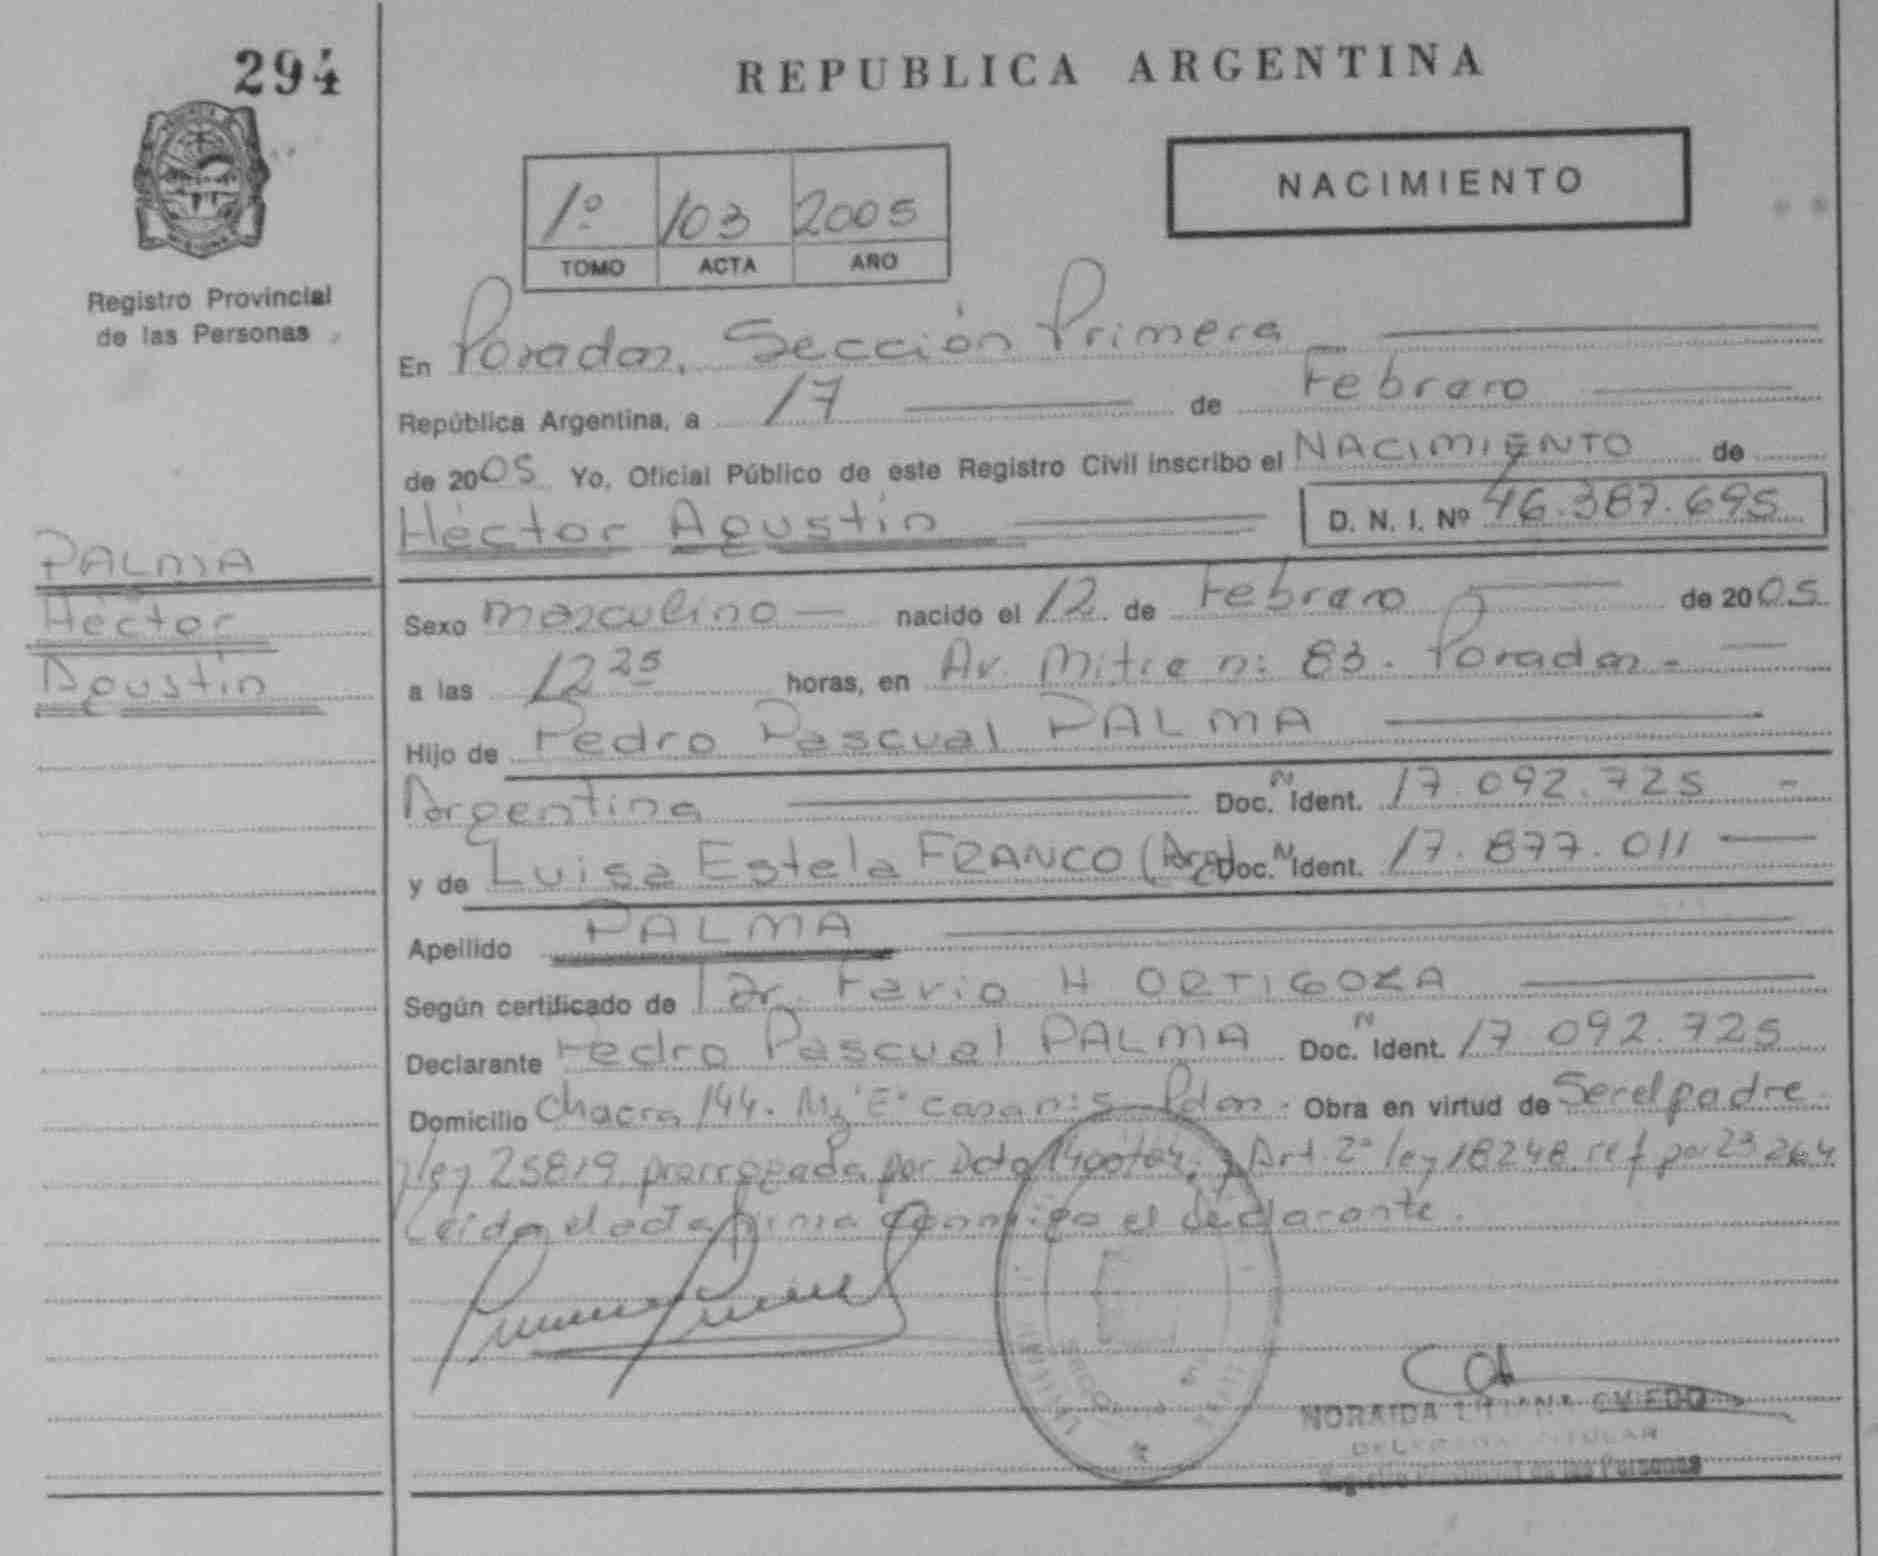 294
REPUBLICA ARGENTINA
NACIMIENTO
1º 103 2005
TOMO ACTA AÑO
Registro Provincial
de las Personas
En Posadas, Sección Primera
República Argentina, a 17 de Febrero
de 2005 Yo, Oficial Público de este Registro Civil inscribo el NACIMIENTO de
Héctor Agustín D. N. I. Nº 46.387.695
PALMA
Héctor
Agustín
Sexo masculino nacido el 12 de Febrero de 2005
a las 12 25 horas, en Av. Mitre n: 83. Posadas -
Hijo de Pedro Pascual PALMA
Argentina Doc. N Ident. 17.092.725 -
y de Luisa Estela FRANCO (Arg) Doc. N Ident. 17.877.011
Apellido PALMA
Según certificado de Dr. Favio H ORTIGOZA
Declarante Pedro Pascual PALMA Doc. N Ident. 17.092.725
Domicilio Chacra 144. Mz "E" casa n: 5 - Pdas. Obra en virtud de Ser el padre
y ley 25819 prorrogada por Dcto 1400/04, y Art. 2º ley 18248 ref por 23264
Leída el acta firma conmigo el declarante.
NORAIDA LILIANA OVIEDO
DELEGADA TITULAR
Registro Provincial de las Personas